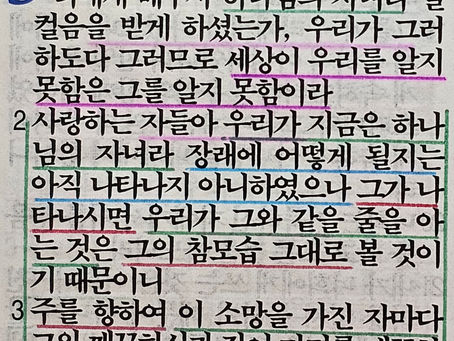 컬음을 받게 하셨는가, 우리가 그러
하도다 그러므로 세상이 우리를 알지
못함은 그를 알지 못함이라
2 사랑하는 자들아 우리가 지금은 하나
님의 자녀라 장래에 어떻게 될지는
아직 나타나지 아니하였으나 그가 나
타나시면 우리가 그와 같을 줄을 아
는 것은 그의 참모습 그대로 볼 것이
기 때문이니
3 주를 향하여 이 소망을 가진 자마다